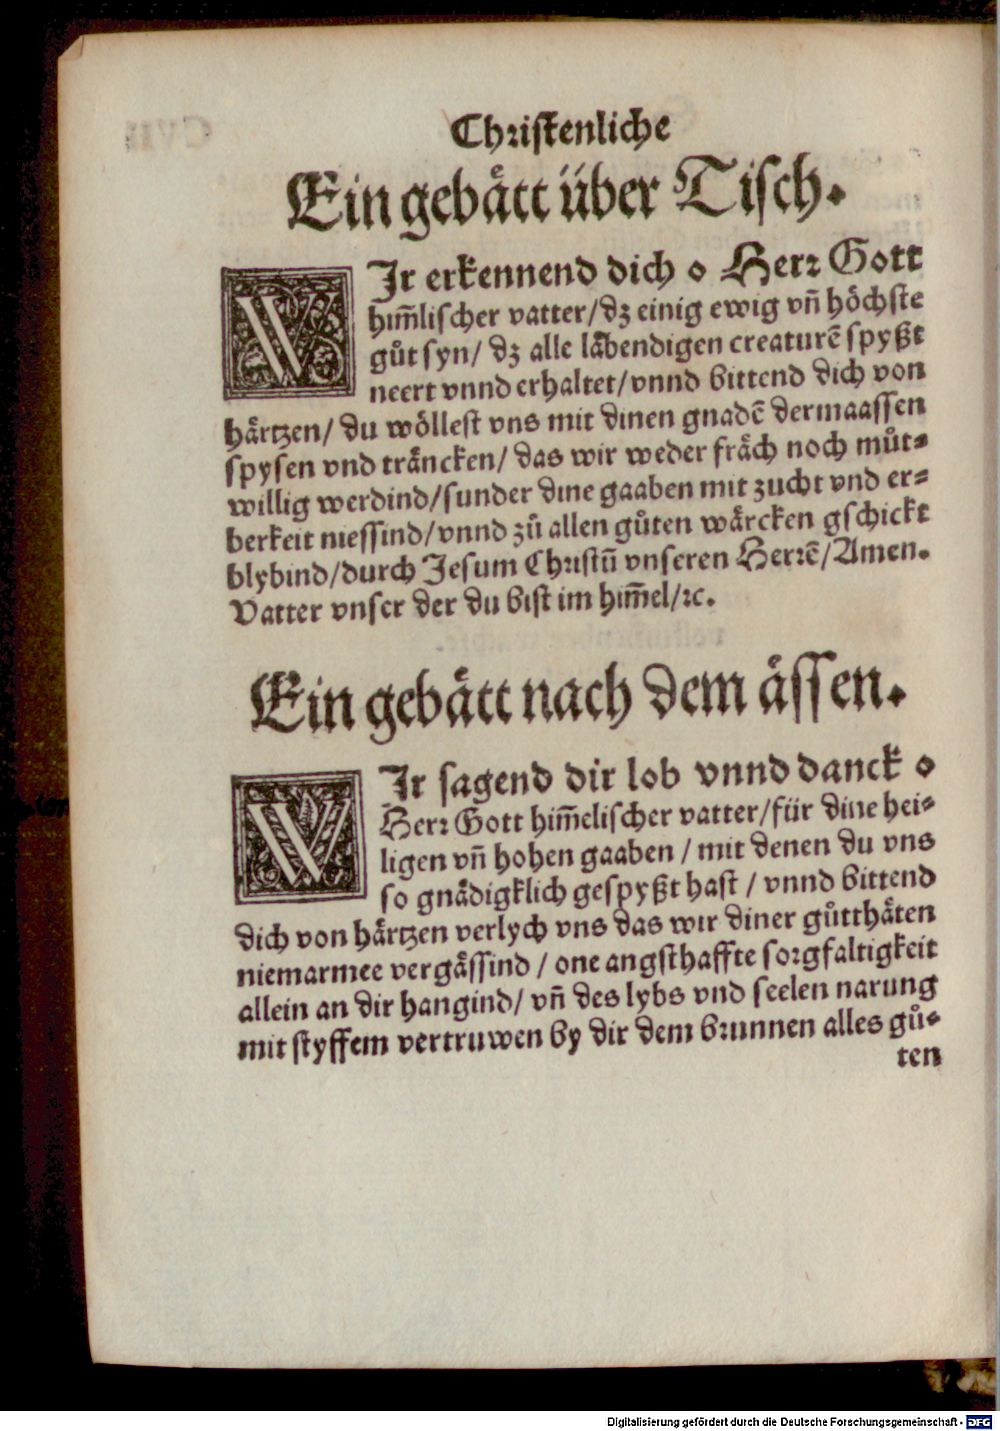 Christenliche
Ein gebätt über Tisch.
WIr erkennend dich o Herr Gott
him̃lischer vatter/dz einig ewig vñ höchste
gůt syn/ dz alle läbendigen creaturẽ spyßt
neert vnnd erhaltet/vnnd bittend dich von
härtzen/ du wöllest vns mit dinen gnadẽ dermaassen
spysen vnd träncken/ das wir weder fräch noch můt-
willig werdind/sunder dine gaaben mit zucht vnd er-
berkeit niessind/vnnd zů allen gůten wärcken gschickt
blybind/durch Jesum Christũ vnseren Herrẽ/Amen.
Vatter vnser der du bist im him̃el/ꝛc.
Ein gebätt nach dem ässen.
WIr sagend dir lob vnnd danck o
Herr Gott him̃elischer vatter/für dine hei-
ligen vñ hohen gaaben / mit denen du vns
so gnädigklich gespyßt hast / vnnd bittend
dich von härtzen verlych vns das wir diner gůtthäten
niemarmee vergässind / one angsthaffte sorgfaltigkeit
allein an dir hangind/ vñ des lybs vnd seelen narung
mit styffem vertruwen by dir dem brunnen alles gů-
ten
Digitalisierung gefördert durch die Deutsche Forschungsgemeinschaft - DFG